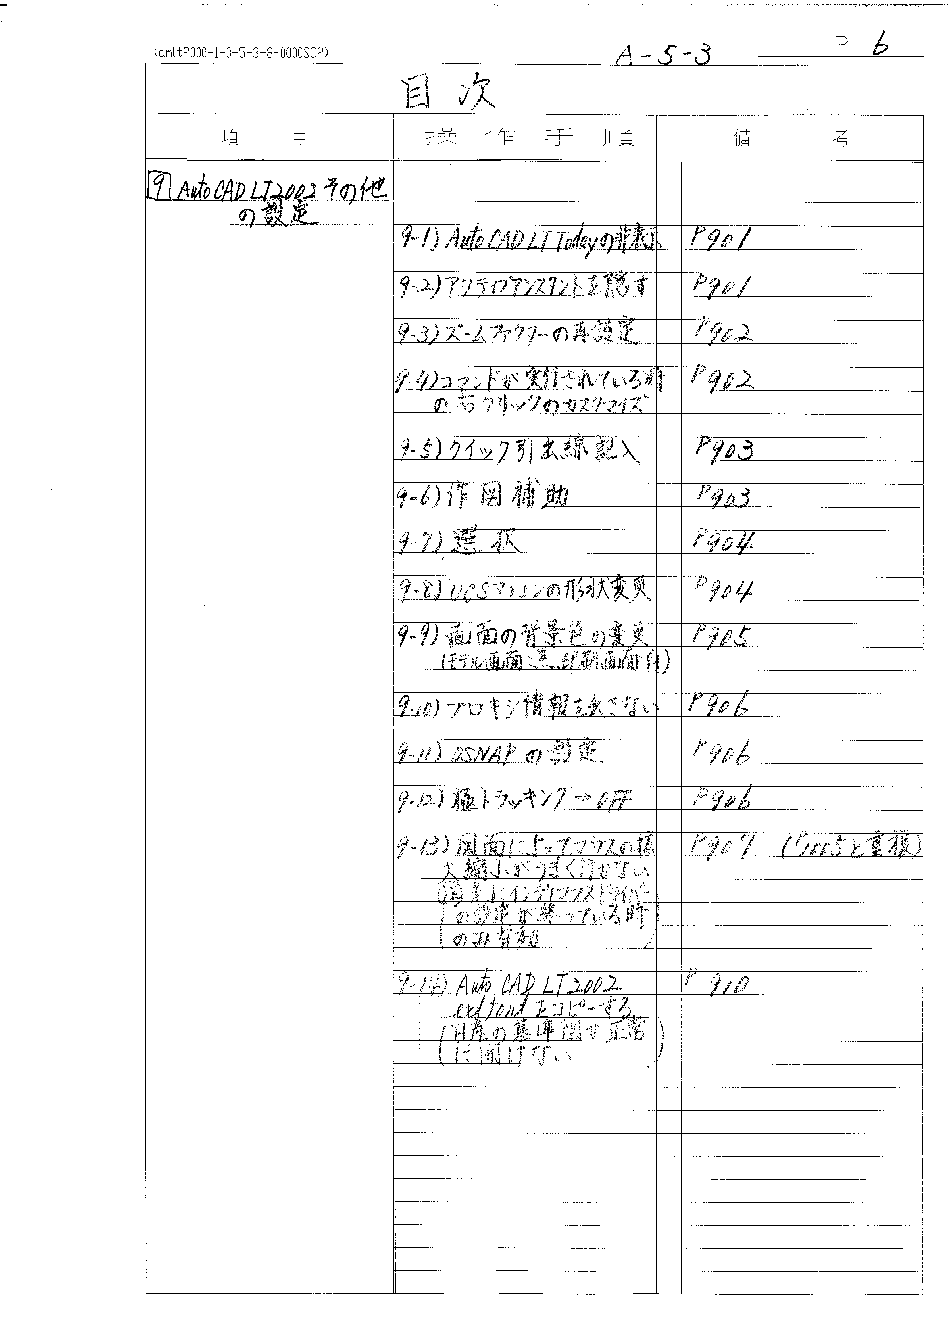 A-5-3
P 6
目次
項 目
操作手順
備 考
9 AutoCAD LT2002 その他
の設定
9-1) AutoCAD LT Todayの非表示 P901
9-2) アクティブアシスタントを隠す P901
9-3) ズームファクターの再設定 P902
9-4) コマンドが実行されている時 P902
の右クリックのカスタマイズ
9-5) クイック引出線記入 P903
9-6) 作図補助 P903
9-7) 選択 P904
9-8) UCSアイコンの形状変更 P904
9-9) 画面の背景色の変更 P905
(モデル画面 印刷画面
9-10) プロキシ情報を出さない P906
9-11) OSNAPの設定 P906
9-12) 極トラッキング→OFF P906
9-13) 図面によってマウスの拡 P907 と重複)
大縮小がうまく行かない
の設定が
ている時
のみ有効
9-14) AutoCAD LT2002 P910
をコピーする
の基準図が正常
に開けない